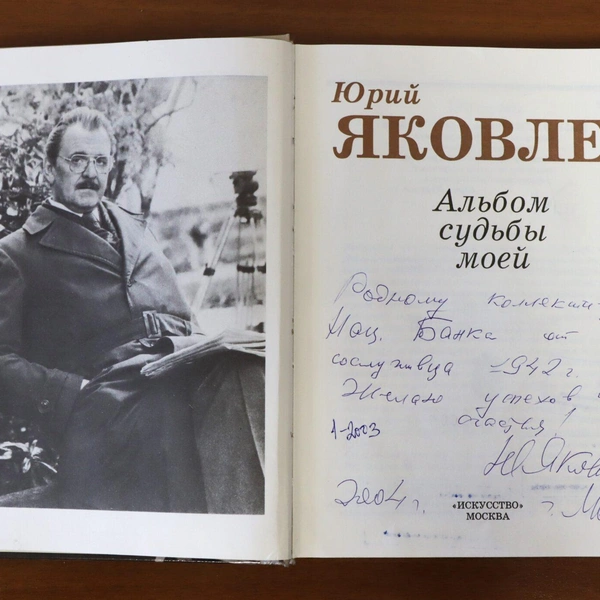 Юрий
ЯКОВЛЕ
Альбом
судьбы
моей
Родному коллекти
Нац. Банка от
сослуживца 1942 г.
Желаю успехов
счастья!
1-2003
Ю Яков
2004 г. г. Мо
«ИСКУССТВО»
МОСКВА